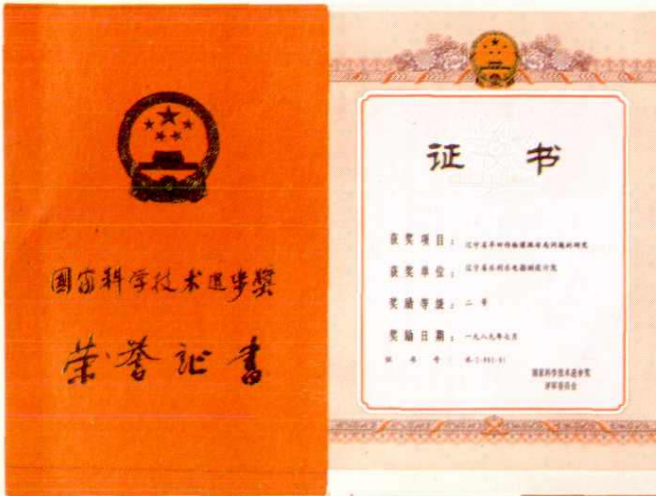 國家科学技术進步獎
荣誉証書
证 书
获奖项目：辽宁省旱田作物灌溉布局问题的研究
获奖单位：辽宁省水利水电勘测设计院
奖励等级：二等
奖励日期：一九八九年七月
证书号：
国家科学技术进步奖
评审委员会